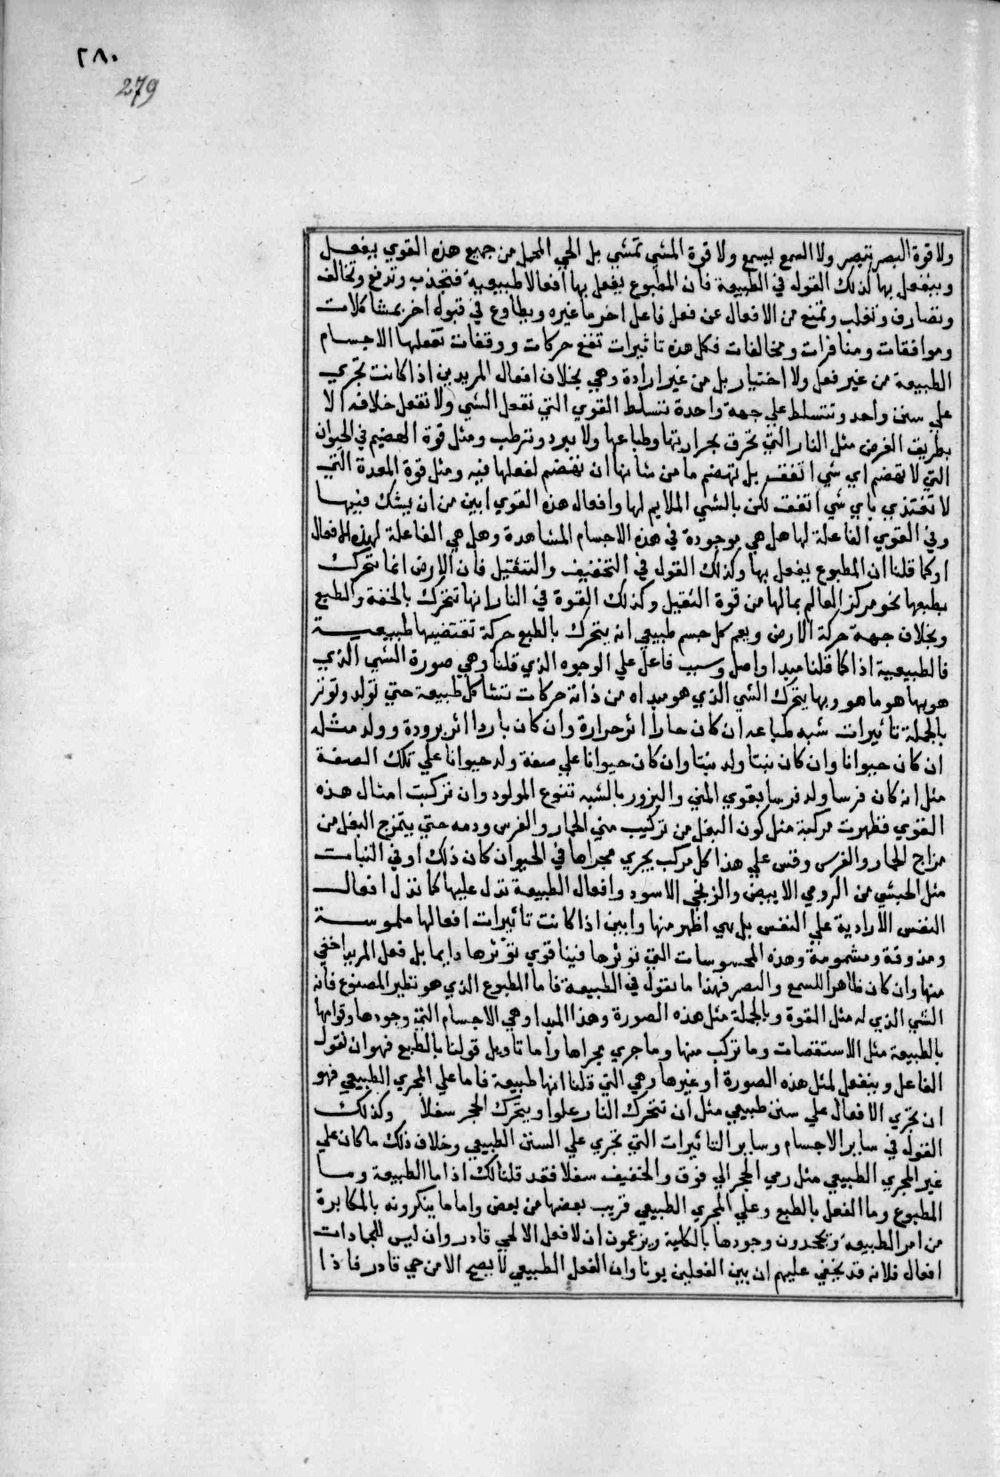 ٢٨٠
279
ولا قوة البصر تبصر ولا السمع يسمع ولا قوة المشي تمشي بل الحي المحمل من جميع هذه القوي يفعل
وينفعل بها لذلك القول في الطبيعة فان المطبوع يفعل بها افعالا طبيعية فتجذب وتدفع وتخالف
وتصارف وتغلب وتمنع من الافعال عن فعل فاعل اخر ما غيره ويطاوع في قبوله اخر بمشاكلات
وموافقات ومنافرات ومخالفات فكل هذه تاثيرات تفتح حركات ووقفات تفعلها الاجسام
الطبيعية من غير فعل ولا اختيار بل من غير ارادة وهي بخلاف افعال المريدين اذا كانت تجري
علي سنن واحد وتتسلط علي جهة واحدة تتسلط القوي التي تفعل الشي ولا تفعل خلافه الا
بطريق العرض مثل النار التي تحرق بحرارتها وطباعها ولا يبرد وترطب ومثل قوة الهضيم في الحيوان
التي لا تهضم اي شي اتفقت بل تهضم ما من شانها ان تهضم لفعلها فيه ومثل قوة المعدة التي
لا تغتذي باي شي اتفقت لكن بالشي الملايم لها وافعال هذه القوي ابين من ان يشك فيها
وفي القوي الفاعلة لها هل هي موجودة في هذه الاجسام المشاهدة وهل هي الفاعلة لهذه الافعال
او كما قلنا ان المطبوع يفعل بها وكذلك القول في التخفيف والتثقيل فان الارض انما تتحرك
بطبعها نحو مركز العالم بما لها من قوة الثقيل وكذلك القوة في النار انها تتحرك بالخفة والطبع
وبخلاف جهة حركة الارض ويعم كل جسم طبيعي انه يتحرك بالطبع حركة تقتضيها طبيعية
فالطبيعية اذا كما قلنا مبدا واصل وسبب فاعل علي الوجوه الذي قلنا وهي صورة الشي الذي
هو بها هو ما هو وبها يتحرك الشي الذي هو مبداه من ذاته حركات تتشاكل طبيعة حتي تولد وتوثر
بالجملة تاثيرات شبه طباعه ان كان حارا اثر حرارة وان كان باردا اثر برودة وولد مثله
ان كان حيوانا وان كان نبتا ولد نبتا وان كان حيوانا علي صفة ولد حيوانا علي تلك الصفة
مثل انه كان فرسا ولد فرسا بقوي المني والبزور بالشبه تنوع المولود وان تركبت امثال هذه
القوي فظهرت مركبة مثل كون البغل من تركيب مني الحمار والفرس ودمه حتي يمتزج البغل من
مزاج الحمار والفرس وقس علي هذا كل مركب يجري مجراها في الحيوان كان ذلك او في النبات
مثل الحبشي من الرومي الابيض والزنجي الاسود وافعال الطبيعة تدل عليها كما تدل افعال
النفس الارادية علي النفس بل هي اظهر منها وابين اذا كانت تاثيرات افعالها ملموسة
ومذوقة ومشمومة وهذه المحسوسات التي توثرها فينا قوي توثرها دايما بل فعل المريد اخفي
منها وان كان ظاهرا للسمع والبصر فهذا ما نقول في الطبيعة فاما المطبوع الذي هو نظير المصنوع فانه
الشي الذي له مثل القوة وبالجملة مثل هذه الصورة وهذا المبدا وهي الاجسام التي وجودها وقوامها
بالطبيعة مثل الاستقصات وما تركب منها وما جري مجراها واما تاويل قولنا بالطبع فهو ان نقول
الفاعل وينفعل لمثل هذه الصورة او غيرها وهي التي قلنا انها طبيعة فاما علي المجري الطبيعي فهو
ان تجري الافعال علي سنن طبيعي مثل ان تتحرك النار علوا ويتحرك الحجر سفلا وكذلك
القول في ساير الاجسام وساير التاثيرات التي تجري علي السنن الطبيعي وخلاف ذلك ما كان علي
غير المجري الطبيعي مثل رمي الحجر الي فوق والخفيف سفلا فقد قلنا لك اذا ما الطبيعة وما
المطبوع وما الفعل بالطبع وعلي المجري الطبيعي قريب بعضها من بعض واما ما ينكرونه بالمكابرة
من امر الطبيعة ويجحدون وجودها بالكلية ويزعمون ان لا فعل الا لحي قادر وان ليس للجمادات
افعال فلانه قد يخفي عليهم ان بين الفعلين بونا وان الفعل الطبيعي لا يصح الا من حي قادر فاذا